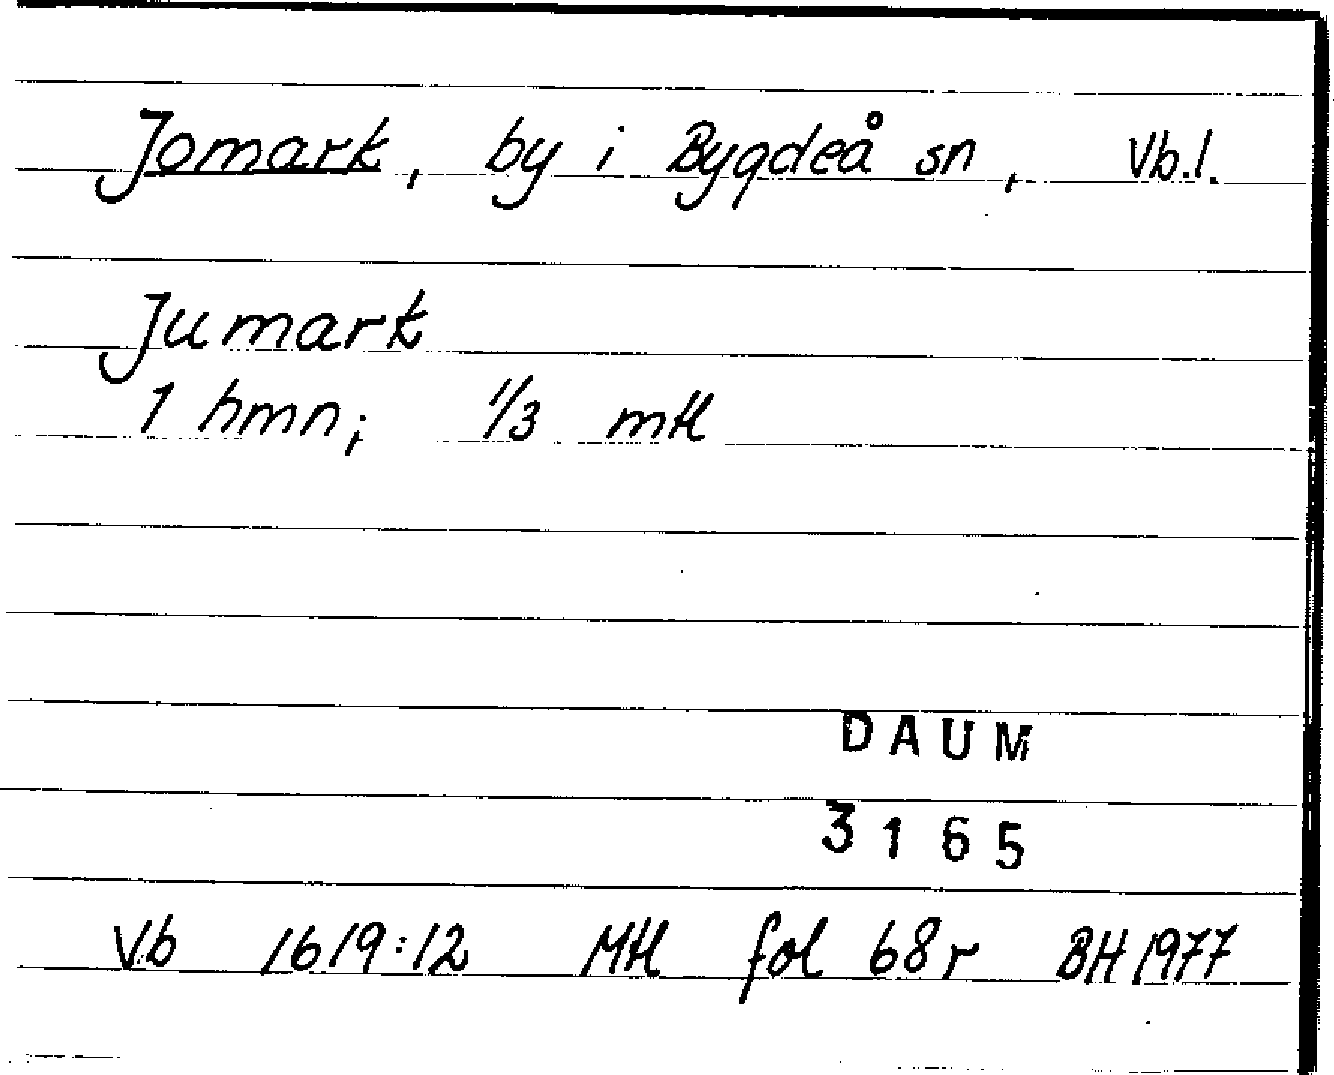 Jomark, by i Bygdeå sn, Vb.l.
Jumark
1 hmn; 1/3 mtl
DAUM
3165
Vb 1619:12 Mtl fol 68r BH 1977